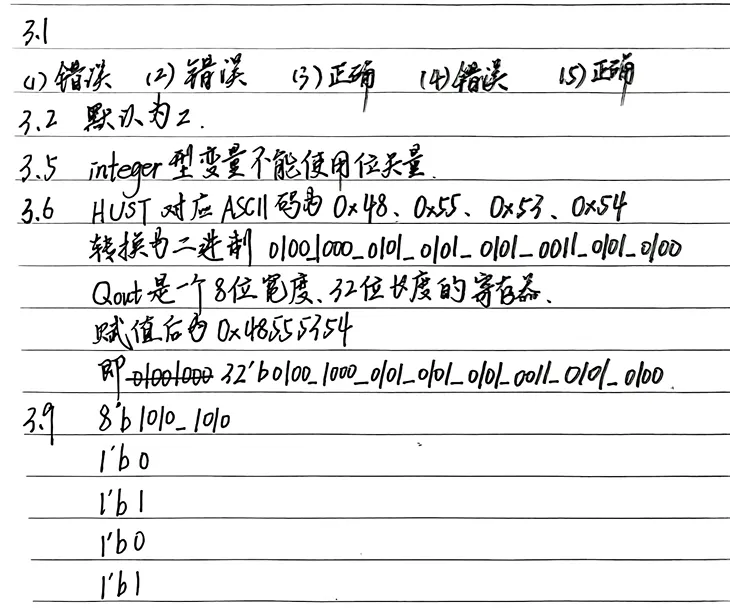 3.1
(1) 错误 (2) 错误 (3) 正确 (4) 错误 (5) 正确
3.2 默认为z.
3.5 integer型变量不能使用位矢量.
3.6 HUST对应ASCII码为0x48、0x55、0x53、0x54
转换为二进制 0100_1000_0101_0101_0101_0011_0101_0100
Qout是一个8位宽度、32位长度的寄存器.
赋值后为0x48555354
即 01001000 32'b0100_1000_0101_0101_0101_0011_0101_0100.
3.9 8'b1010_1010
1'b0
1'b1
1'b0
1'b1